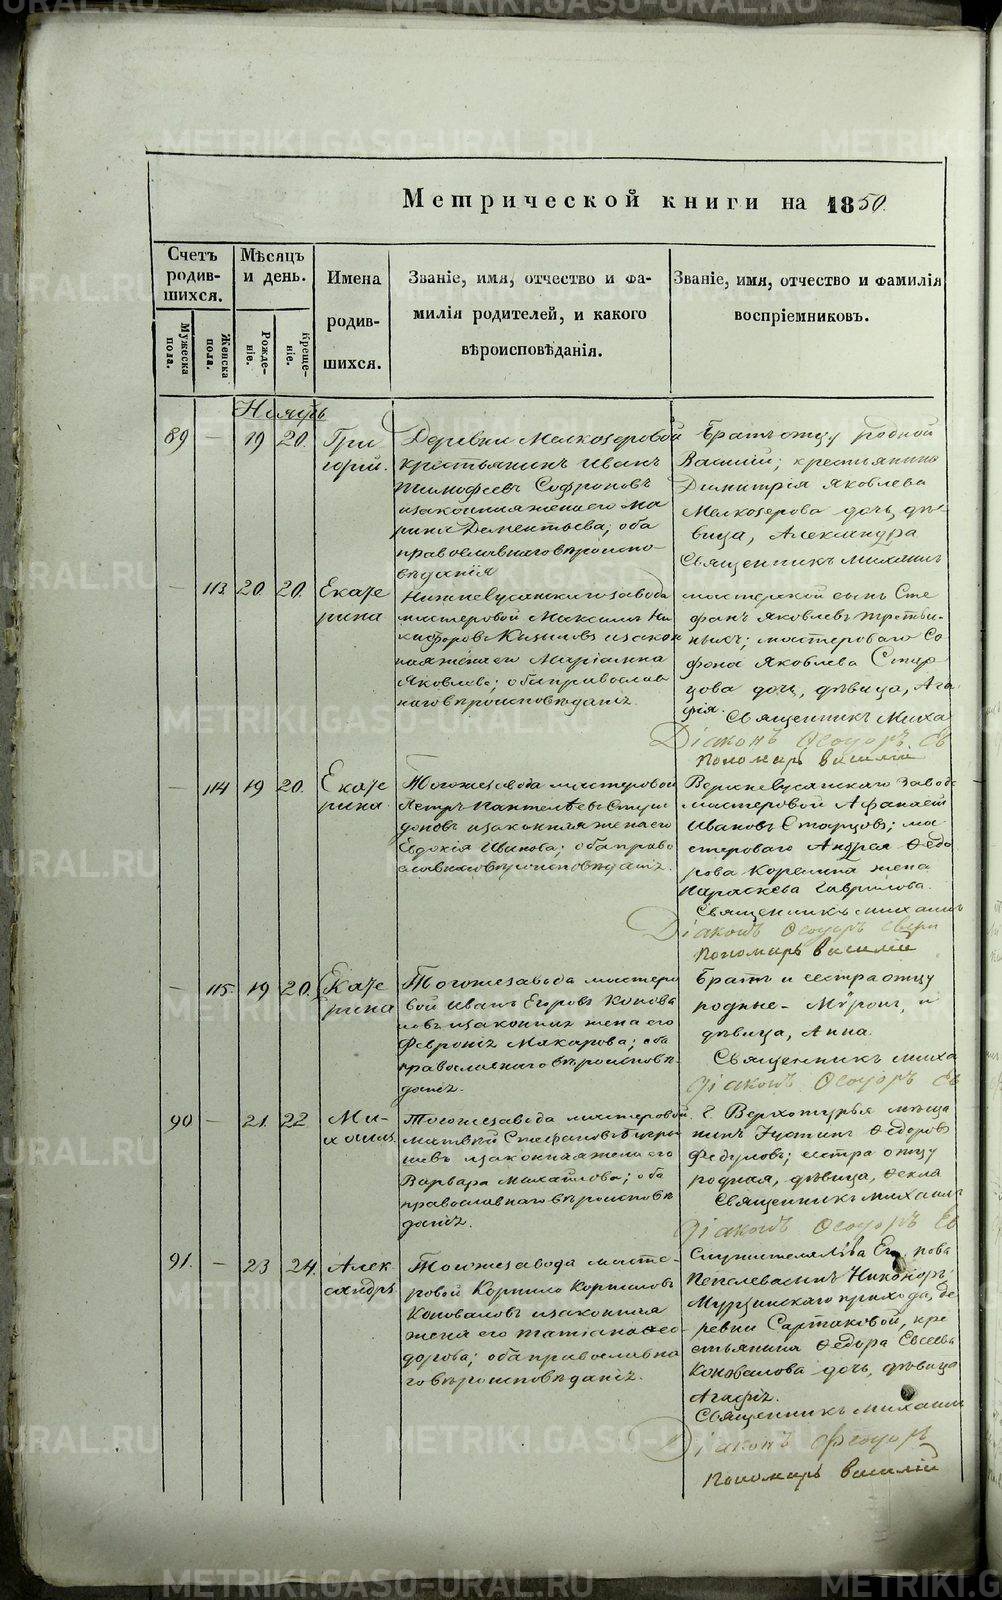 Метрической книги на 1850.
Счетъ родив-шихся.
Мѣсяцъ и день.
Имена родив-шихся.
Званіе, имя, отчество и фа-
милія родителей, и какого
вѣроисповѣданія.
Званіе, имя, отчество и фамилія
воспріемниковъ.
Мужеска пола.
Женска пола.
Рожде-ніе.
Креще-ніе.
Ноябрь
89 — 19 20. Гри
горій.
Деревни Мелкозеровой
крестьянинъ Иванъ
Тимофеевъ Софроновъ
и законная жена его Ма
рина Дементьева; оба
православнаго вѣроиспо-
вѣданія
Братъ отцу родной
Василій; крестьянина
Димитрія Яковлева
Мелкозерова дочь дѣ-
вица, Александра
Священникъ Михаилъ
— 113. 20. 20. Екате
рина
завода
мастеровой Максимъ Ни
кифоровъ и закон
ная жена его Маріамна
Яковлева; оба православ
наго вѣроисповѣданія.
мастерской сынъ Сте
фанъ Яковлевъ
мастероваго Со
фона Яковлева Стар
цова дочь, дѣвица, Ага
фія.
Священникъ Миха
Діаконъ Ѳеодоръ
Пономарь Василій
— 114 19 20. Екате
рина
Тогоже завода мастеровой
Петръ Пантелѣевъ
и законная жена его
Евдокія Иванова; оба право
славнаго вѣроисповѣданія.
завода
мастеровой Афанасій
Ивановъ Старцовъ; ма
стероваго Андрея Ѳедо
рова жена
Параскева Гаврилова.
Священникъ Михаилъ
Діаконъ Ѳеодоръ
Пономарь Василій
— 115. 19 20. Екате
рина
Тогоже завода мастеро
вой Иванъ Егоровъ Конова
ловъ и законная жена его
Февронія Макарова; оба
православнаго вѣроисповѣ-
данія.
Братъ и сестра отцу
родные — Миронъ, и
дѣвица, Анна
Священникъ Миха
Діаконъ Ѳеодоръ
90 — 21. 22. Ми-
хаилъ.
Тогоже завода мастеровой
Матвѣй Стефановъ
и законная жена его
Варвара Михайлова; оба
православнаго вѣроисповѣ
данія.
г. Верхотурья мѣща
нинъ Іустинъ Ѳедоровъ
Федуловъ; сестра отцу
родная, дѣвица, Ѳекла
Священникъ Михаилъ
Діаконъ Ѳеодоръ
91. — 23 24. Алек
сандръ
Тогоже завода масте-
ровой Корнило Корниловъ
Коноваловъ и законная
жена его Татіана Ѳео-
дорова; оба православна
го вѣроисповѣданія.
Служителя
Никоноръ;
Мурзинскаго прихода, де
ревни Сартаковой, кре
стьянина Ѳедора Евсеева
Коновалова дочь, дѣвица
Агафія.
Священникъ Михаилъ
Діаконъ Ѳеодоръ
Пономарь Василій
METRIKI.GASO-URAL.RU